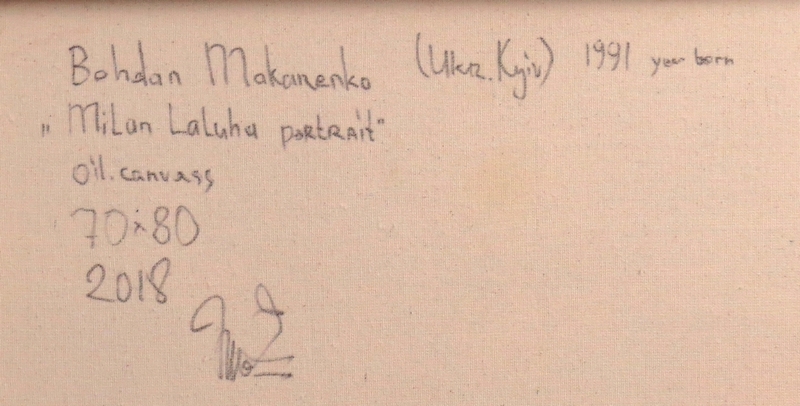 Bohdan Makarenko (Ukr. Kyiv) 1991 year born
„Milan Laluha portrait"
oil. canvass
70x80
2018